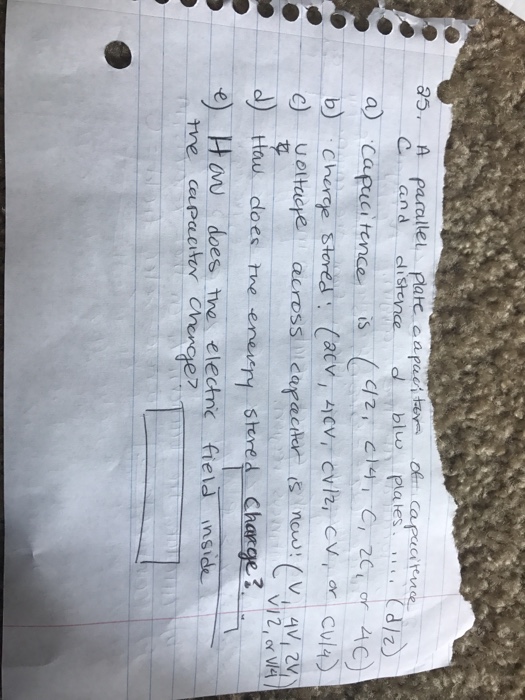 25. A parallel plate capacitor of capacitence
C and distence d b/w plates. .... (d/2)
a) capacitence is ( C/2, C/4, C, 2C, or 4C)
b) charge stored: (2CV, 4CV, CV/2, CV, or CV/4)
c) voltage across capacitor is now: (V, 4V, 2V,
V/2, or V/4)
d) How does the energy stored change?
e) How does the electric field inside
the capacitor change?